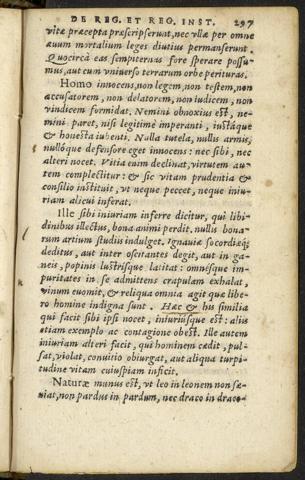 DE REG. ET REG. INST. 297
vitæ præcepta præscripserunt, nec vllæ per omne
æuum mortalium leges diutius permanserunt.
Quocirca eas sempiternas fore sperare possu-
mus, aut cum vniuerso terrarum orbe perituras.
Homo innocens, non legem, non testem, non
accusatorem, non delatorem, non iudicem, non
vindicem formidat. Nemini obnoxius est, ne-
mini paret, nisi legitimè imperanti, iustáque
& honesta iubenti. Nulla tutela, nullis armis,
nullóque defensore eget innocens: nec sibi, nec
alteri nocet. Vitia enim declinat, virtutem au-
tem complectitur: & sic vitam prudentia &
consilio instituit, vt neque peccet, neque iniu-
riam alicui inferat.
Ille sibi iniuriam inferre dicitur, qui libi-
dinibus illectus, bona animi perdit. nullis bona-
rum artium studiis indulget. Ignauiæ socordiæq;
deditus, aut inter oscitantes degit, aut in ga-
neis, popinis lustrísque latitat: omnésque im-
puritates in se admittens crapulam exhalat,
vinum euomit, & reliqua omnia agit quæ libe-
ro homine indigna sunt. Hæc & his similia
qui facit sibi ipsi nocet, iniuriúsque est: aliis
etiam exemplo ac contagione obest. Ille autem
iniuriam alteri facit, qui hominem cædit, pul-
sat, violat, conuitio obiurgat, aut aliqua turpi-
tudine vitam cuiuspiam inficit.
Naturæ munus est, vt leo in leonem non sæ-
uiat, non pardus in pardum, nec draco in draco-